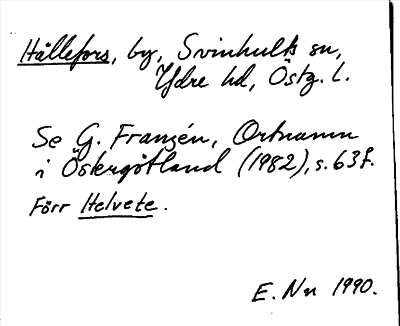 Hällefors, by, Svinhults sn,
Ydre hd, Östg. l.
Se G. Franzén, Ortnamn
i Östergötland (1982), s. 63 f.
Förr Helvete.
E. Nn 1990.